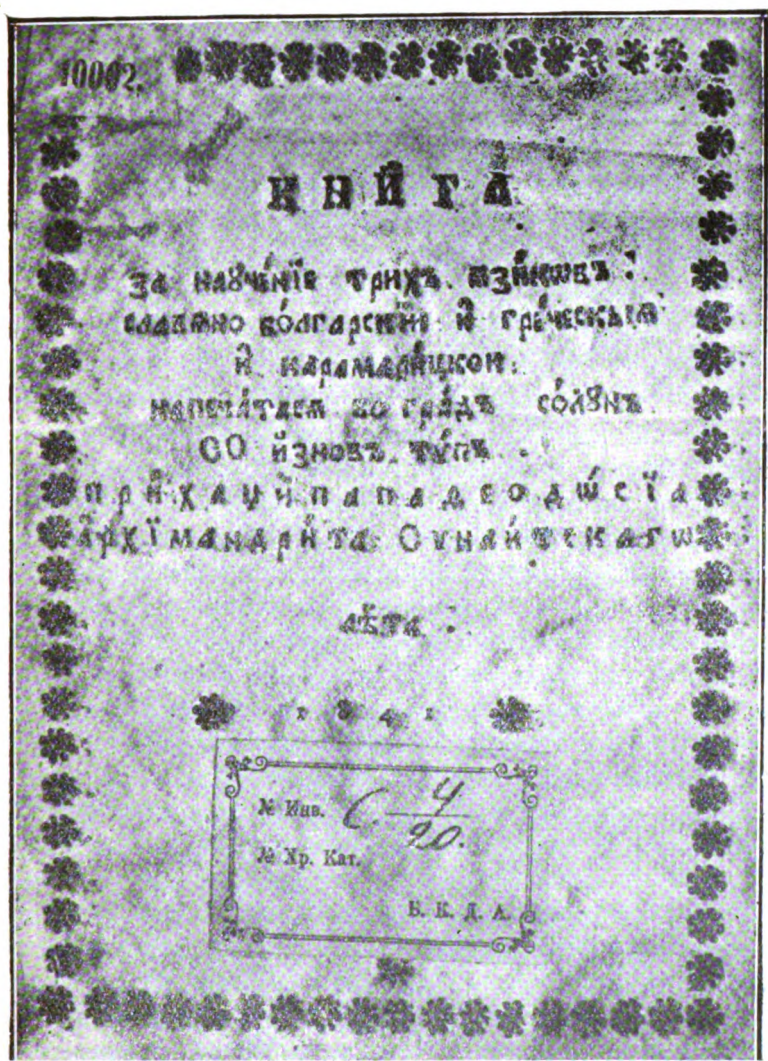 10002.
КНИ́ГА
ЗА НАꙋЧЕ́НЇЕ ТРИХЪ ꙖЗИ́КѠВЪ :
СЛАВѦНО БО́ЛГАРСКИЙ И҆ ГРЕ́ЧЕСКЫѦ
И҆ КАРАМАЛИ́ЦКОЙ.
НАПЕЧА́ТАСѦ ВО ГРА́ДЪ СО́ЛꙋНЪ
СО И҆ЗНОВЪ ТѴ́ПЪ .
ПРИ́ ХАЏИ́ ПАПАѲЕОДѠ́СЇА
А҆РХЇМАНДРИ́ТА
ЛѢ́ТА :
1841
№ Инв. С. 4/90.
№ Хр. Кат.
Б. К. Д. А.